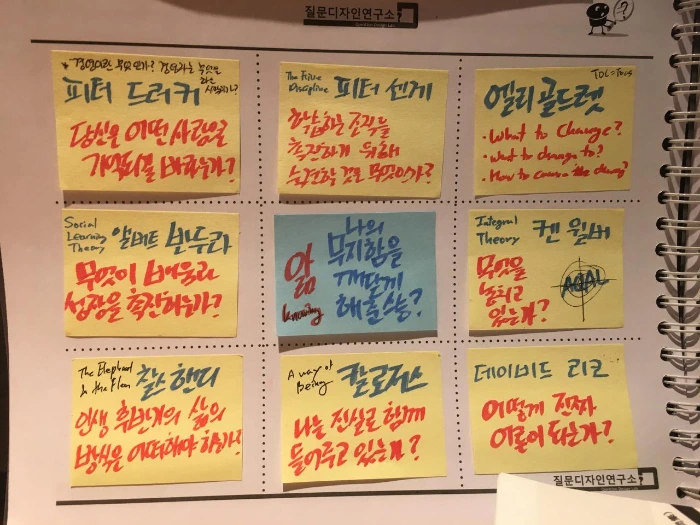 질문디자인연구소
* 경영이란 무엇인가? 경영자는 무엇을
하는 사람인가?
피터 드러커
당신은 어떤 사람으로
기억되길 바라는가?
The Five
Discipline
피터 센게
학습하는 조직을
촉진하기 위해
습관화 할 것은 무엇인가?
TOC = Focus
엘리 골드렛
· What to Change?
· What to change to?
· How to cause the change?
Social
Learning
Theory
알버트 반두라
무엇이 배움과
성장을 촉진하는가?
앎
knowing
나의
무지함을
깨닫게
해준 스승?
Integral
Theory
켄 윌버
무엇을
놓치고
있는가?
AQAL
The Elephant
In the Flea
찰스 핸디
인생 후반기의 삶의
방식은 어떠해야 하는가?
A way of
Being
칼 로저스
나는 진실로 함께
들어주고 있는가?
데이비드 리코
어떻게 진짜
어른이 되는가?
질문디자인연구소